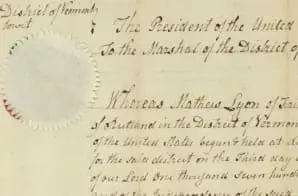 District of Vermont
towit
The President of the United
To the Marshal of the District of
Whereas Mathew Lyon of
of Rutland in the District of Vermon
of the United States begun & held at
for the said district on the Third day
of our Lord One thousand Seven hund
and of the Independence of the